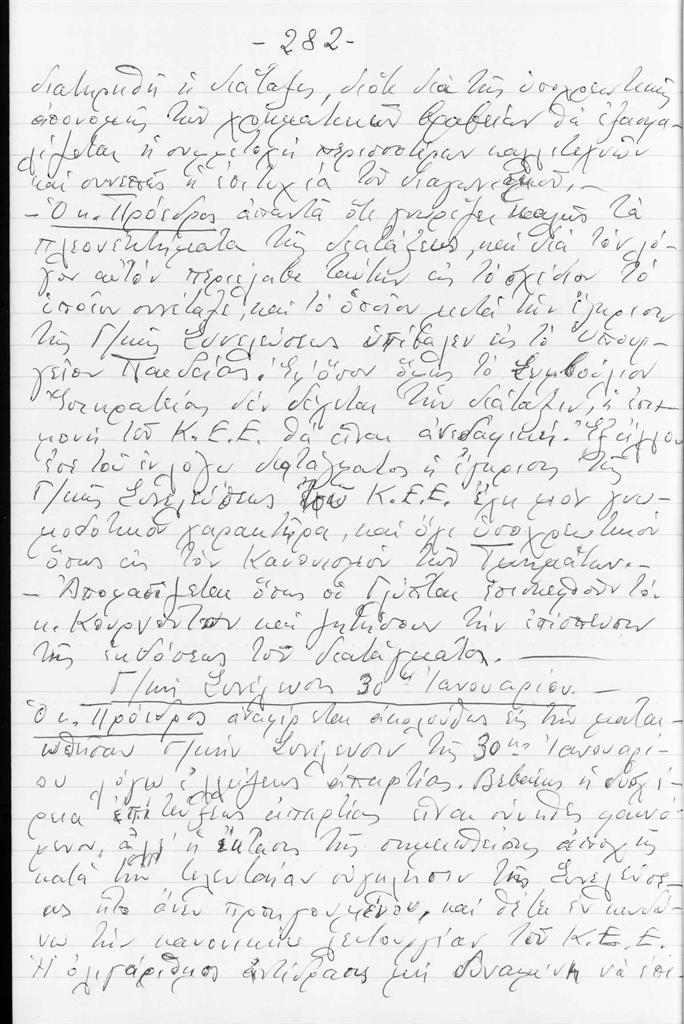 - 282 -
διατηρηθῆ ἡ διάταξις, διότι διὰ τῆς ὑποχρεωτικῆς
ἀπονομῆς τῶν χρηματικῶν βραβείων θὰ ἐξασφα-
λίζεται ἡ συμμετοχὴ περισσοτέρων καλλιτεχνῶν
καὶ συνεπῶς ἡ ἐπιτυχία τοῦ διαγωνισμοῦ.-
- Ὁ κ. Πρόεδρος ἀπαντᾶ ὅτι γνωρίζει καλῶς τὰ
πλεονεκτήματα τῆς διατάξεως, καὶ διὰ τὸν λό-
γον αὐτὸν περιέλαβε ταύτην εἰς τὸ σχέδιον τὸ
ὁποῖον συνέταξε, καὶ τὸ ὁποῖον μετὰ τὴν ἔγκρισιν
τῆς Γ/κῆς Συνελεύσεως ὑπέβαλεν εἰς τὸ Ὑπουρ-
γεῖον Παιδείας. Ἐφ' ὅσον ὅμως τὸ Συμβούλιον
Ἐπικρατείας δὲν δέχεται τὴν διάταξιν, ἡ ἐπι-
μονὴ τοῦ Κ.Ε.Ε. θὰ εἶναι ἀνεδαφική. Ἐξ ἄλλου
ἐπὶ τοῦ ἐν λόγω διατάγματος ἡ ἔγκρισις τῆς
Γ/κῆς Συνελεύσεως τοῦ Κ.Ε.Ε. ἔχει μόνον γνω-
μοδοτικὸν χαρακτῆρα, καὶ ὄχι ὑποχρεωτικὸν
ὅπως εἰς τὸν Κανονισμὸν τῶν Τμημάτων.-
- Ἀποφασίζεται ὅπως οἱ Γλύπται ἐπισκεφθοῦν τὸν
κ. καὶ ζητήσουν τὴν ἐπίσπευσιν
τῆς ἐκδόσεως τοῦ διατάγματος.
Γ/κὴ Συνέλευσις 30ης Ἰανουαρίου.-
Ὁ κ. Πρόεδρος ἀναφέρεται ἀκολούθως εἰς τὴν μαται-
ωθεῖσαν Γ/κὴν Συνέλευσιν τῆς 30ης Ἰανουαρί-
ου λόγω ἐλλείψεως ἀπαρτίας. Βεβαίως ἡ δυσχέ-
ρεια ἐπιτεύξεως ἀπαρτίας εἶναι σύνηθες φαινό-
μενον, ἀλλ' ἡ ἔκτασις τῆς σημειωθείσης ἀποχῆς
κατὰ τὴν τελευταίαν σύγκλησιν τῆς Συνελεύσε-
ως ἦτο ἄνευ προηγουμένου, καὶ θέτει ἐν κινδύ-
νω τὴν κανονικὴν λειτουργίαν τοῦ Κ.Ε.Ε.
Ἡ ὀλιγάριθμος ἀντίδρασις μὴ δυναμένη νὰ ἐπι-